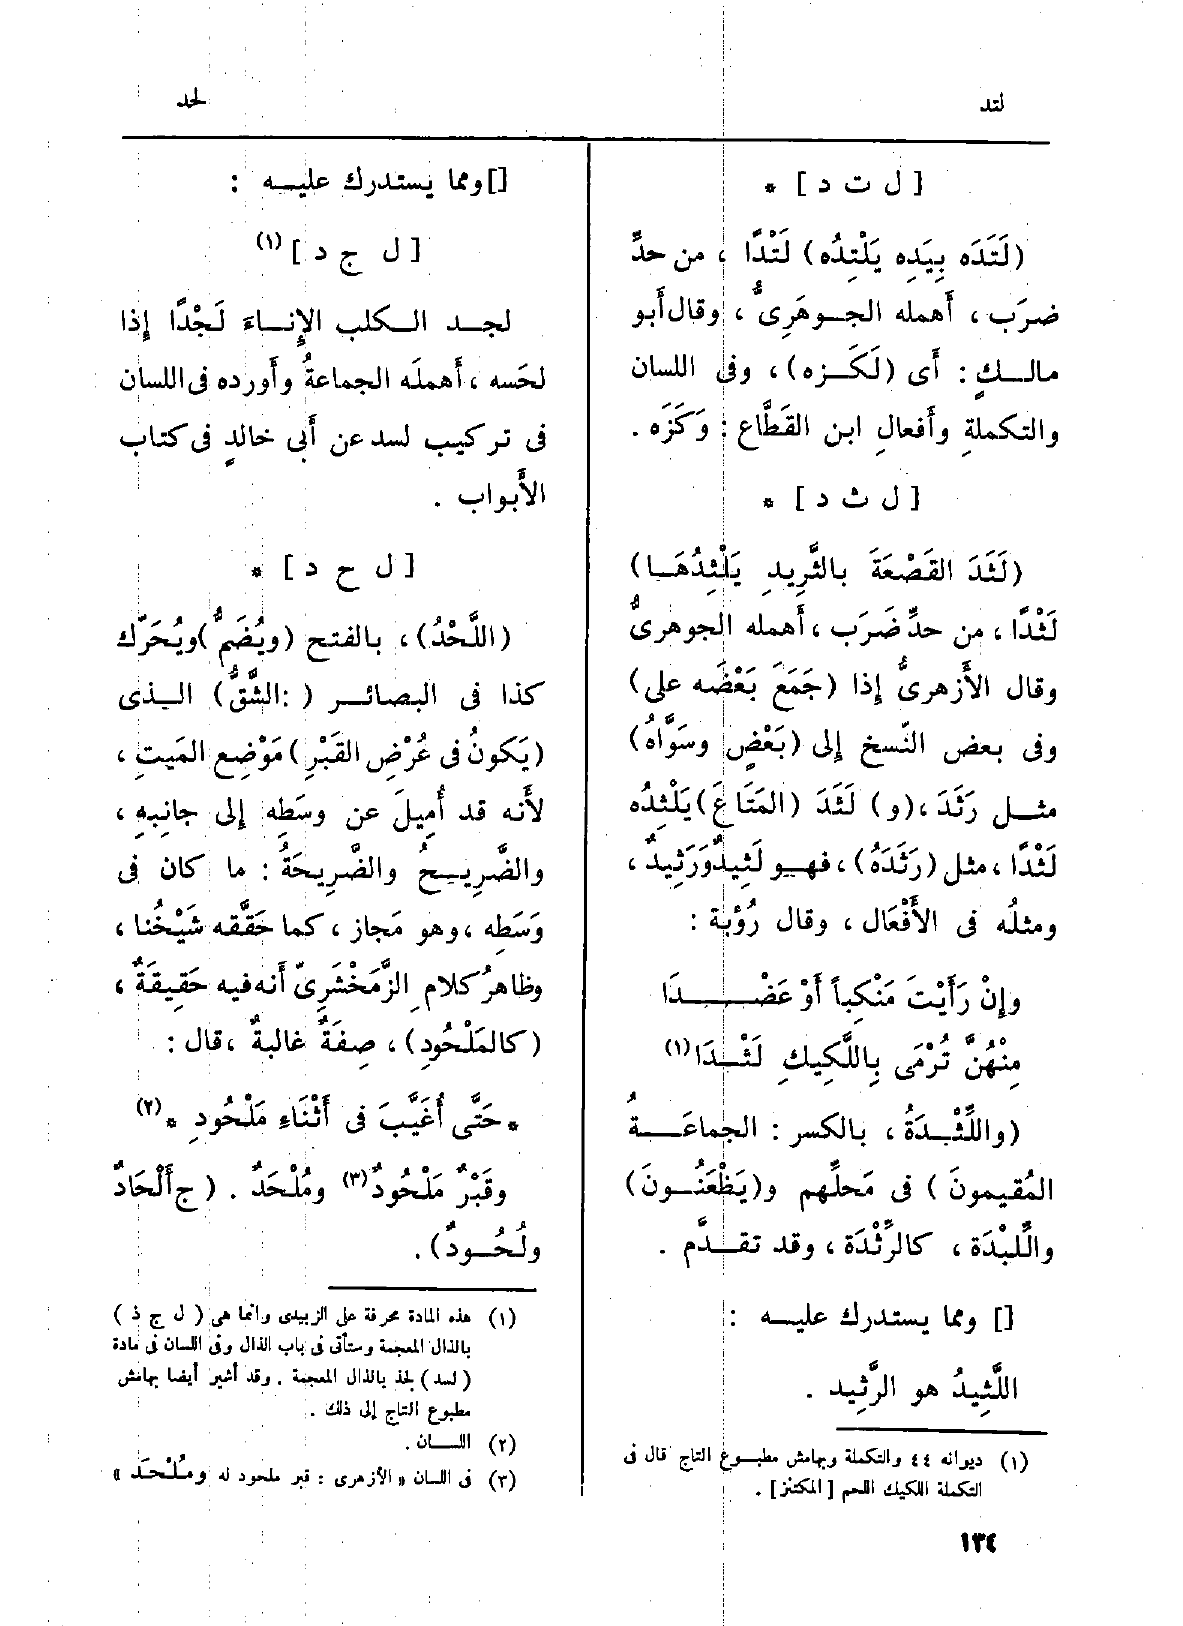 لتد
لحد
[ ل ت د ] *
(لَتَدَه بِيَدِه يَلْتِدُه) لَتْدًا ، من حدِّ
ضرَب ، أهمله الجوهَرِىُّ ، وقال أبو
مالكٍ : أى (لَكَزه) ، وفى اللسان
والتكملةِ وأفعالِ ابن القَطَّاع : وَكَزَه .
[ ل ث د ] *
(لَثَدَ القَصْعَةَ بالثَّرِيدِ يَلْثِدُهَا)
لَثْدًا ، من حدِّ ضَرَب ، أهمله الجوهرىُّ
وقال الأَزهرىُّ إذا (جَمَعَ بَعْضَه على)
وفى بعض النّسخ إلى (بَعْضٍ وسَوَّاهُ)
مثل رَثَدَ ، (و) لَثَدَ (المَتَاعَ) يَلْثِدُه
لَثْدًا ، مثل (رَثَدَهُ) ، فهو لَثِيدٌ وَرَثِيدٌ ،
ومثلُه فى الأَفْعَال ، وقال رُؤْبة :
وإِنْ رَأَيْتَ مَنْكِباً أَوْ عَضْدَا
مِنْهُنَّ تُرْمَى بِاللَّكِيكِ لَثْدَا(١)
(واللِّثْدَةُ ، بالكسر : الجماعَةُ
المُقيمونَ) فى مَحلِّهم و(يَظْعَنُونَ)
واللِّبْدَة ، كالرِّثْدَة ، وقد تقدَّم .
[] ومما يستدرك عليه :
اللَّثِيدُ هو الرَّثِيد .
(١) ديوانه ٤٤ والتكملة وبهامش مطبوع التاج قال فى
التكملة اللكيك اللحم [المكتنز] .
[] ومما يستدرك عليه :
[ ل ج د ] (١)
لجد الكلب الإِناءَ لَجْدًا إِذا
لحَسه ، أهملَه الجماعةُ وأورده فى اللسان
فى تركيب لسد عن أبى خالدٍ فى كتاب
الأَبواب .
[ ل ح د ] *
(اللَّحْدُ) ، بالفتح (ويُضَمُّ) ويُحَرَّك
كذا فى البصائر ( : الشَّقُّ) الذى
(يَكونُ فى عُرْضِ القَبْرِ) مَوْضِع المَيتِ ،
لأَنه قد أُمِيلَ عن وسَطِه إلى جانِبِه ،
والضَّرِيحُ والضَّرِيحَةُ : ما كان فى
وَسَطِه ، وهو مَجاز ، كما حَقَّقه شَيْخُنا ،
وظاهرُ كلامِ الزَّمَخْشَرِىّ أنه فيه حَقِيقَةٌ ،
(كالمَلْحُودِ) ، صِفَةٌ غالبةٌ ، قال :
* حَتَّى أُغَيَّبَ فى أَثْنَاءِ مَلْحُودِ * (٢)
وقَبْرٌ مَلْحُودٌ(٣) ومُلْحَدٌ . (ج أَلْحَادٌ
ولُحُودٌ) .
(١) هذه المادة محرفة على الزبيدى وانما هى ( ل ج ذ )
بالذال المعجمة وستأتى فى باب الذال وفى اللسان فى مادة
(لسد) لجذ بالذال المعجمة . وقد أشير أيضا بهامش
مطبوع التاج إلى ذلك .
(٢) اللسان .
(٣) فى اللسان « الأزهرى : قبر ملحود له ومُلْحَد »
١٣٤